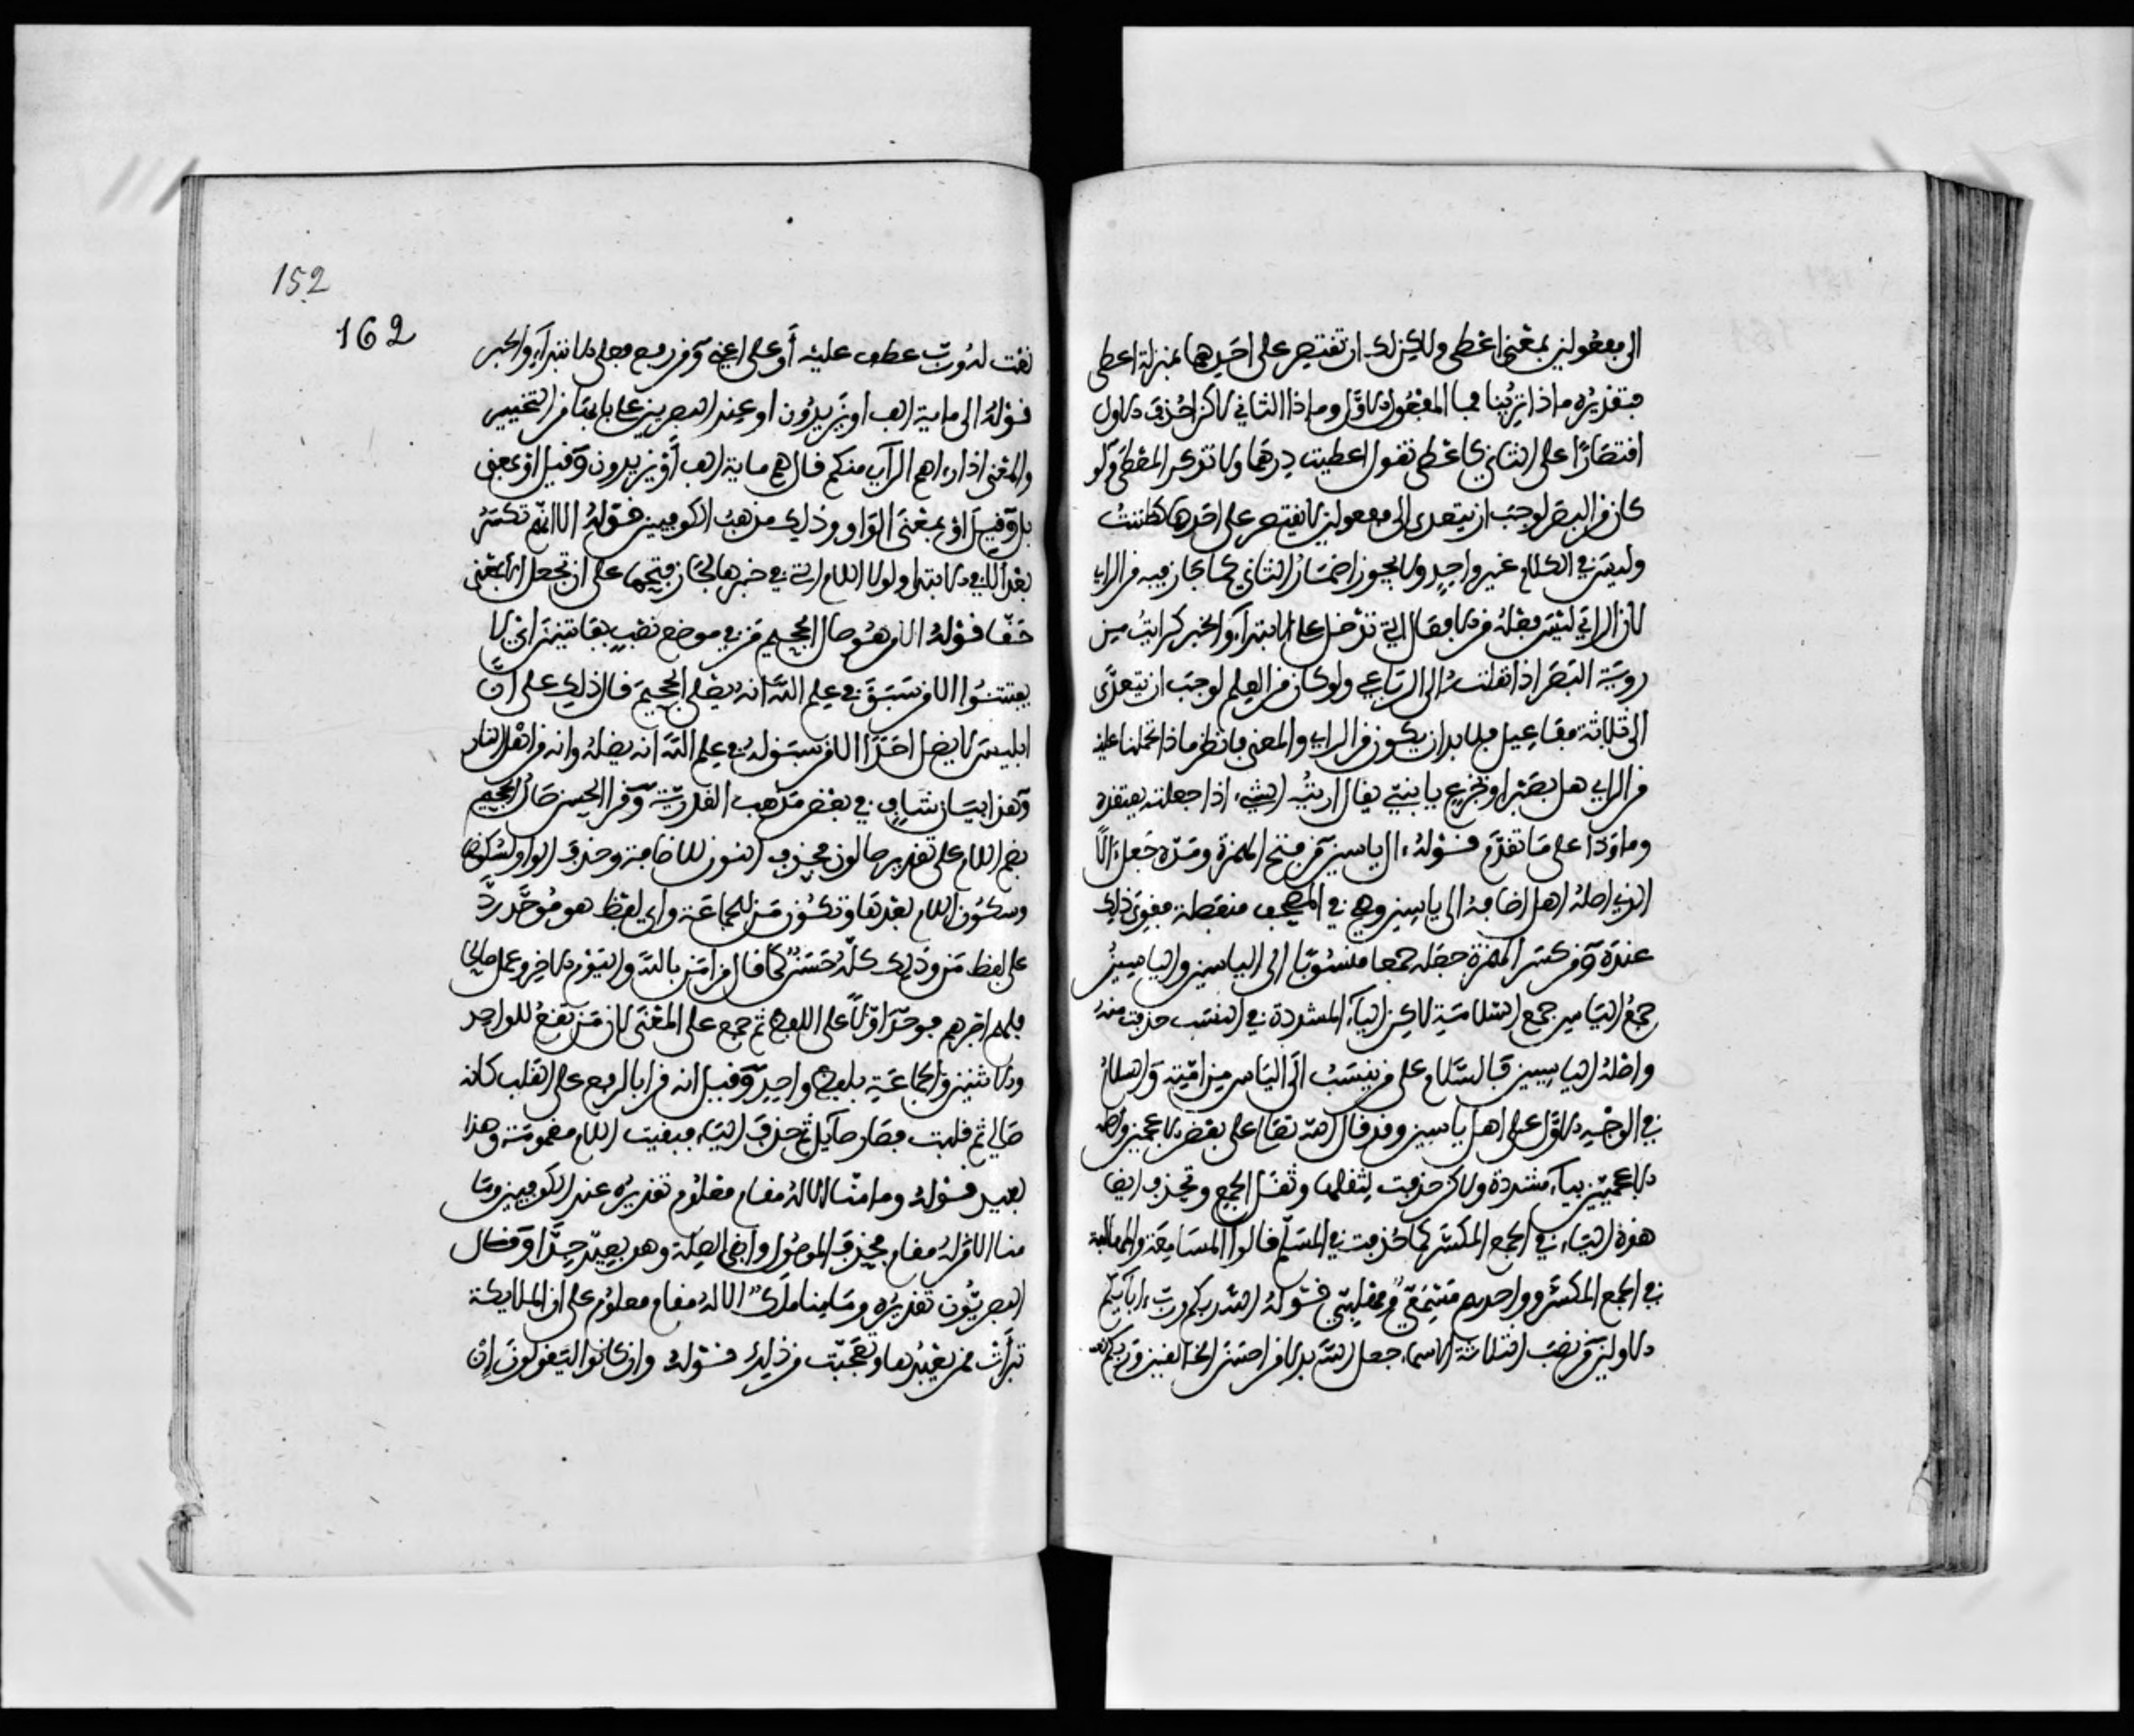 الى مفعولين بمعنى اعطى ولاكن لك ان تقتصر على احدهما بمنزلة اعطى
فتقديره ماذا تريننا فنا المفعول الاول وماذا الثاني لاكن حذف الاول
اقتصارا على الثاني كاعطى تقول اعطيت درهما ولا تذكر المعطى ولو
كان من البصر لوجب ان يتعدى الى مفعولين لا يقتصر على احدهما كظننت
وليس في الكلام غير واحد ولا يجوز اضمار الثاني كما جاز فيه من الراي
لان الراي ليس فعله من الافعال التي تدخل على الابتداء والخبر كرايت من
روية البصر اذا نقلته الى الرباعي ولو كان من العلم لوجب ان يتعدى
الى ثلاثة مفاعيل فلا بد ان يكون من الراي والمعنى فانظر ماذا تحملنا عليه
من الراي هل نصبر او نجزع يا بني يقال اريته الشيء اذا جعلته يعتقده
وما ودا على ما تقدم قوله ءال ياسين من فتح الهمزة ومده جعله ءالا
الذي اصله اهل اضافه الى ياسين وهي في المصحف منفصلة فقوى ذلك
عنده ومن كسر الهمزة جعله جمعا منسوبا الى الياسين والياسين
جمع الياس جمع السلامة لاكن الياء المشددة في النسب حذفت منه
واصله الياسيين فالسلام على من نسب الى الياس من امته والسلام
في الوجه الاول على اهل ياسين وقد قال الله تعالى على بعض الاعجمين واصله
الاعجميين بياء مشددة ولاكن حذفت لثقلها وثقل الجمع وتحذف ايضا
هذه الياء في الجمع المكسر كما حذفت في المسلم قالوا المسامعة والمهالبة
في الجمع المكسر وواحدهم مسمعي ومهلبي قوله الله ربكم ورب ءابايكم
الاولين من نصب الثلاثة الاسماء جعل الله بدلا من احسن الخالقين وربكم
152
162
نعت له ورب عطف عليه أو على اعني ومن رفع فعلى الابتداء والخبر
قوله الى ماية الف او يزيدون او عند البصريين على بابها من التخيير
والمعنى اذا راهم الراي منكم قال هم ماية الف أو يزيدون وقيل او بمعنى
بل وقيل او بمعنى الواو وذلك مذهب الكوفيين قوله الا انهم تكسر
بعد الا في الابتدا ولولا اللام التي في خبرها لجاز فتحها على ان تجعل الا بمعنى
حقا قوله الا من هو صال الجحيم من في موضع نصب بفاتنين اي لا
يفتنوا الا من سبق في علم الله انه يصلى الجحيم فدل ذلك على ان
ابليس لا يضل احدا الا من سبق له في علم الله انه يضله وانه من اهل النار
وهذا بيان شاف في نقض مذهب القدرية وقرا الحسن صال الجحيم
بضم اللام على تقدير صالون فحذف النون للاضافة وحذف الواو لسكونها
وسكون اللام بعدها وتكون من للجماعة واي لفظ هو موحد رد
على لفظ من وذلك كله حسن كما قال من امن بالله واليوم الاخر وعمل صالحا
فلهم اجرهم فوحد اولا على اللفظ ثم جمع على المعنى لان من تقع للواحد
والاثنين والجماعة بلفظ واحد وقيل انه قرا بالرفع على القلب كانه
صالي ثم قلبت فصار صايل ثم حذف الياء فبقيت اللام مضمومة وهذا
بعيد قوله وما منا الا له مقام معلوم تقديره عند الكوفيين وما
منا الا من له مقام فحذف الموصول وابقى الصلة وهو بعيد جدا وقال
البصريون تقديره وما منا ملك الا له مقام معلوم على ان الملايكة
تبرات ممن يعبدها وتعجبت من ذلك قوله وان كانوا ليقولون ان